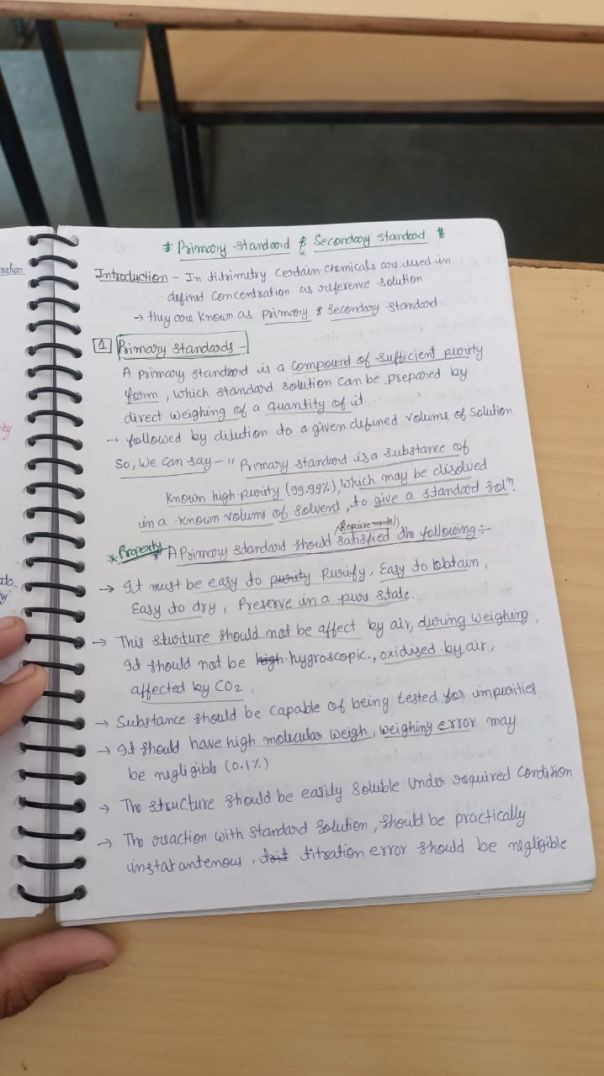 * Primary standard & Secondary standard *
Introduction - In titrimetry certain chemicals are used in
defined concentration as reference solution
→ they are known as primary & secondary standard
1 Primary standards -
A primary standard is a compound of sufficient purity
form, which standard solution can be prepared by
direct weighing of a quantity of it
→ followed by dilution to a given defined volume of solution.
So, we can say - " Primary standard is a substance of
known high purity (99.99%), which may be disolved
in a known volume of solvent, to give a standard sol".
(Requirements)
* Property * A Primary standard should satisfied the following :-
→ It must be easy to purity Purify, Easy to obtain,
Easy to dry, Preserve in a pure state.
→ This sturture should not be affect by air, during weighing,
It should not be high hygroscopic, oxidised by air,
affected by CO2.
→ Substance should be capable of being tested for impurities
→ It should have high molecular weigh, weighing error may
be negligible (0.1%)
→ The structure should be easily soluble under required condition
→ The reaction with standard solution, should be practically
instatantenous, titration error should be negligible